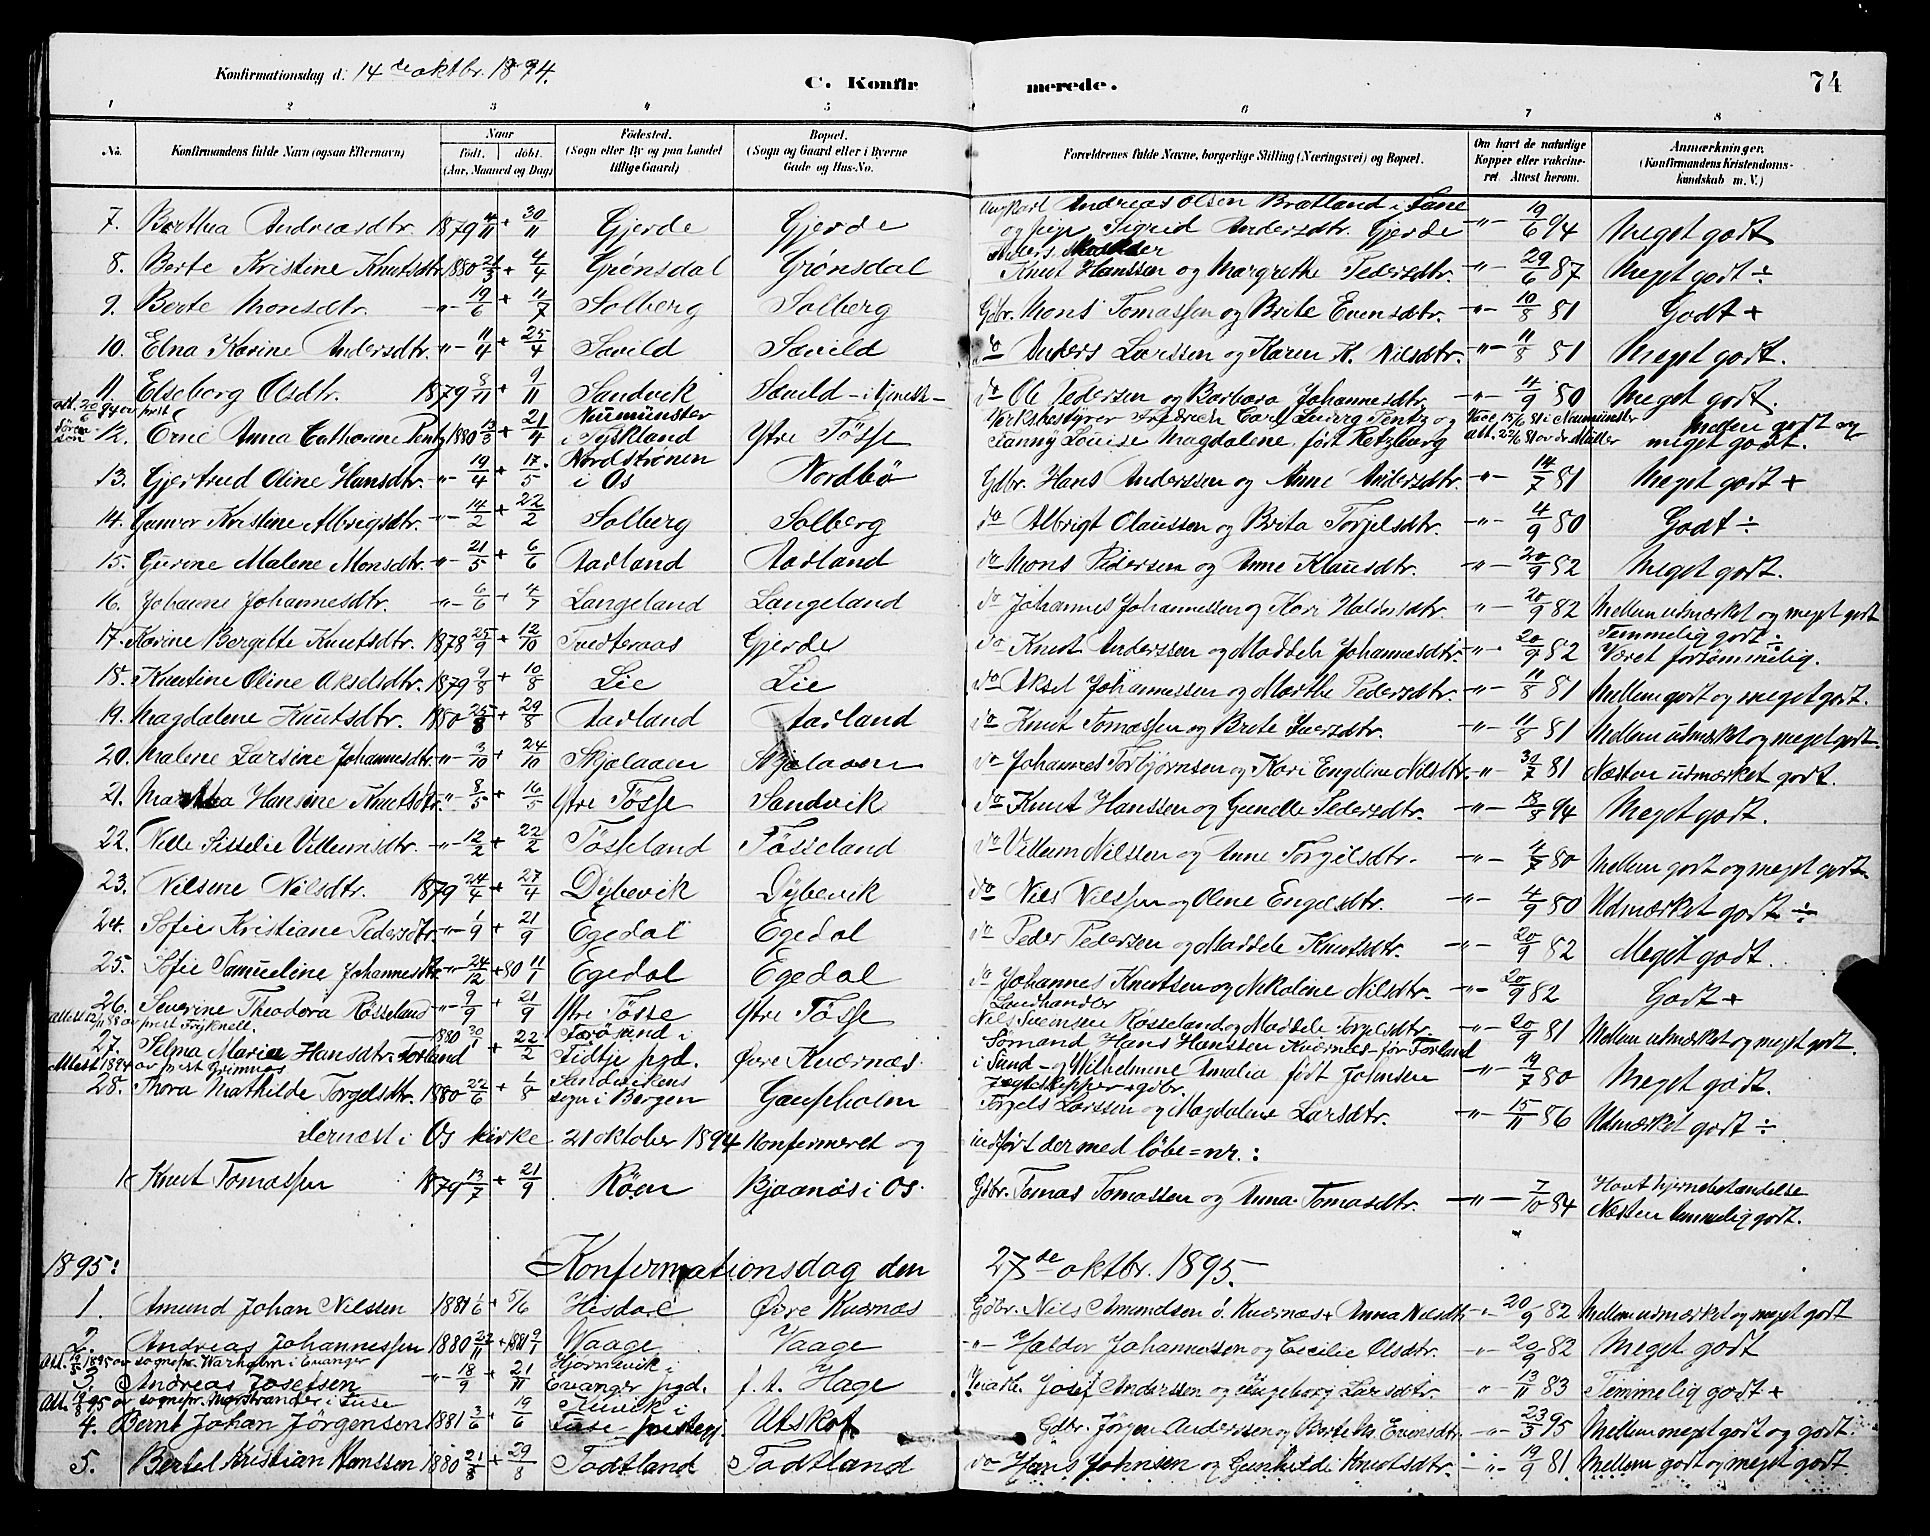 Konfirmationsdag d. 14de oktbr. 1894.
C. Konfirmerede.
74
1 2 3 4 5 6 7 8
No. Konfirmandens fulde Navn (ogsaa Efternavn) Naar født. døbt. (Aar, Maaned og Dag) Fødested. (Sogn eller By og paa Landet tillige Gaard) Bopæl. (Sogn og Gaard eller i Byerne Gade og Hus-No. Forældrenes fulde Navne, borgerlige Stilling (Næringsvei) og Bopæl. Om havt de naturlige Kopper eller vakcineret. Attest herom. Anmærkninger, (Konfirmandens Kristendomskundskab m. V.)
7. Berthea Andreasdtr. 1879 4/11 + 30/11 Gjerde Gjerde Ungkarl Andreas Olsen Bratland i Fane og pige Sigrid Andersdtr. Gjerde -"- 19/6 94 Meget godt
8. Berte Kristine Knutsdtr. 1880 21/3 + 4/4 Grönsdal Grönsdal Knut Hanssen og Margrethe Pedersdtr. -"- 29/6 87 Meget godt ÷
9. Berte Monsdtr. -"- 19/6 + 11/7 Solberg Solberg Gdbr. Mons Tomassen og Brite Evensdtr. -"- 10/8 81 Godt +
10. Elna Karine Andersdtr. -"- 11/4 + 25/4 Sævild Sævild do Anders Larssen og Karen K. Nilsdtr. -"- 11/8 81 Meget godt.
11. Elseborg Olsdtr. 1879 8/11 + 9/11 Sandvik Sævild do Ole Pedersen og Barbara Johannesdtr. -"- 4/9 80 Meget godt.
12. Erne Anna Catharine Pentz 1880 13/3 + 21/4 Neumünster i Tyskland Ytre Tösse Verksbestyrer Fredrich Carl Ludvig Pentz og Fanny Louise Magdalene født Retzburg Vac. 15/6 81 i Neumünster att. 22/6 81 av dr. Müller mellem godt og meget godt.
13. Gjertrud Oline Hansdtr. -"- 19/4 + 17/5 Nordströnen i Os Nordbö Gdbr. Hans Anderssen og Anne Andersdtr. -"- 14/7 81 Meget godt +
14. Gunvor Kristine Albrigtsdtr. -"- 14/2 + 22/2 Solberg Solberg do Albrigt Olaussen og Brita Torgilsdtr. -"- 4/9 80 Godt ÷
15. Gurine Malene Monsdtr. -"- 21/5 + 6/6 Aarland Aarland do Mons Pedersen og Anne Klausdtr. -"- 20/9 82 Meget godt.
16. Johanne Johannesdtr. -"- 6/6 + 4/7 Langeland Langeland do Johannes Johannessen og Kari Haldorsdtr. -"- 20/9 82 Mellem udmærket og meget godt
17. Karine Bergitte Knutsdtr. 1878 25/9 + 12/10 Tvedteraas Gjerde do Knut Anderssen og Maddele Johannesdtr. -"- 20/9 82 Temmelig godt ÷ Været forsömmelig.
18. Knutine Oline Akselsdtr. 1879 9/8 + 10/8 Lie Lie do Aksel Johannessen og Marthe Pedersdtr. -"- 11/8 81 Mellem godt og meget godt.
19. Magdalene Knutsdtr. 1880 25/8 + 29/8 Aarland Aarland do Knut Tomassen og Brite Iversdtr. -"- 11/8 81 Mellem udmærket og meget godt.
20. Malene Larsine Johannesdtr. -"- 3/10 + 24/10 Skjelaaen Skjelaaen do Johannes Torbjörnsen og Kari Engeline Nilsdtr. -"- 30/7 81 Næsten udmærket godt.
21. Martha Hansine Knutsdtr. -"- 8/5 + 16/5 Ytre Tösse Sandvik do Knut Hanssen og Gunelle Pedersdtr. -"- 18/8 94 Meget godt.
22. Nille Sissilie Villumsdtr. -"- 12/2 + 22/2 Tösseland Tösseland do Villum Nilssen og Anne Torgilsdtr. -"- 4/7 80 Mellem godt og meget godt.
23. Nilsine Nilsdtr. 1879 24/4 + 27/4 Dybevik Dybevik do Nils Nilssen og Oline Engelsdtr. -"- 4/9 80 Udmærket godt ÷
24. Sofie Kristiane Pedersdtr. -"- 1/9 + 21/9 Egedal Egedal do Peder Pedersen og Maddele Knutsdtr. -"- 20/9 82 Meget godt.
25. Sofie Samueline Johannesdtr. -"- 24/12 + 80 11/1 Egedal Egedal do Johannes Knutsen og Nikoline Nilsdtr. -"- 20/9 82 Godt +
26. Severine Theodora Rösseland -"- 9/9 + 21/9 Ytre Tösse Ytre Tösse Landhandler Nils Svensen Rösseland og Maddele Torgilsdtr. -"- 20/9 81 Mellem udmærket og meget godt.
27. Selma Marie Hansdtr. Torland 1880 30/1 + 22/2 i Lidtje pgd. Övre Kvernæs Sömand Hans Hanssen Kvernæs før Torland i Sund og Wilhelmine Amalia født Johnsen -"- 19/7 80 Meget godt.
Attest 1894 av prest Grimnæs
28. Thora Mathilde Torgelsdtr. 1880 22/6 + 1/8 Sandvikens sogn i Bergen Gaupholm Jægteskipper + gdbr. Torgels Larssen og Magdalena Larsdtr. -"- 15/11 86 Udmærket godt ÷
dernest i Os kirke 21 oktober 1894 konfirmeret og indfört der med löbe=nr.:
1. Knut Tomassen 1879 13/7 + 21/9 Röen Bjaanæs i Os. Gdbr. Tomas Tomassen og Anna Tomasdtr. -"- 7/10 84 Havt hjernebetændelse Næsten temmelig godt.
1895: Konfirmationsdag den 27de oktbr. 1895.
1. Amund Johan Nilssen 1881 1/6 + 5/6 Hisdal Övre Kvernæs Gdbr. Nils Amundsen ö. Kvernæs + Anna Nilsdtr. -"- 20/9 82 Mellem udmærket og meget godt
2. Andreas Johannessen 1880 22/11 + 1881 9/1 Vaage Vaage -"- Haldor Johannessen og Cecilie Olsdtr. -"- 20/9 82 Meget godt
Att. 19/5 1895 av sognepr. Warholm i Evanger
3. Andreas Josefsen -"- 18/9 + 21/11 i Evanger pgd. f. t. Hage Josef Anderssen og Ingeborg Larsdtr. -"- 13/11 83 Temmelig godt +
Att. 19/8 95 av sognepr. Magstrander i Fuse
4. Bernt Johan Jörgensen 1881 3/6 + 19/6 i Fuse prestegj. Utskot Gdbr. Jörgen Anderssen og Berte Evensdtr. -"- 23/3 95 Mellem meget godt og godt.
5. Bertel Kristian Hanssen 1880 21/8 + 29/8 Todtland Todtland do Hans Johnsen og Gunhilde Knutsdtr. -"- 19/9 81 Mellem godt og meget godt.